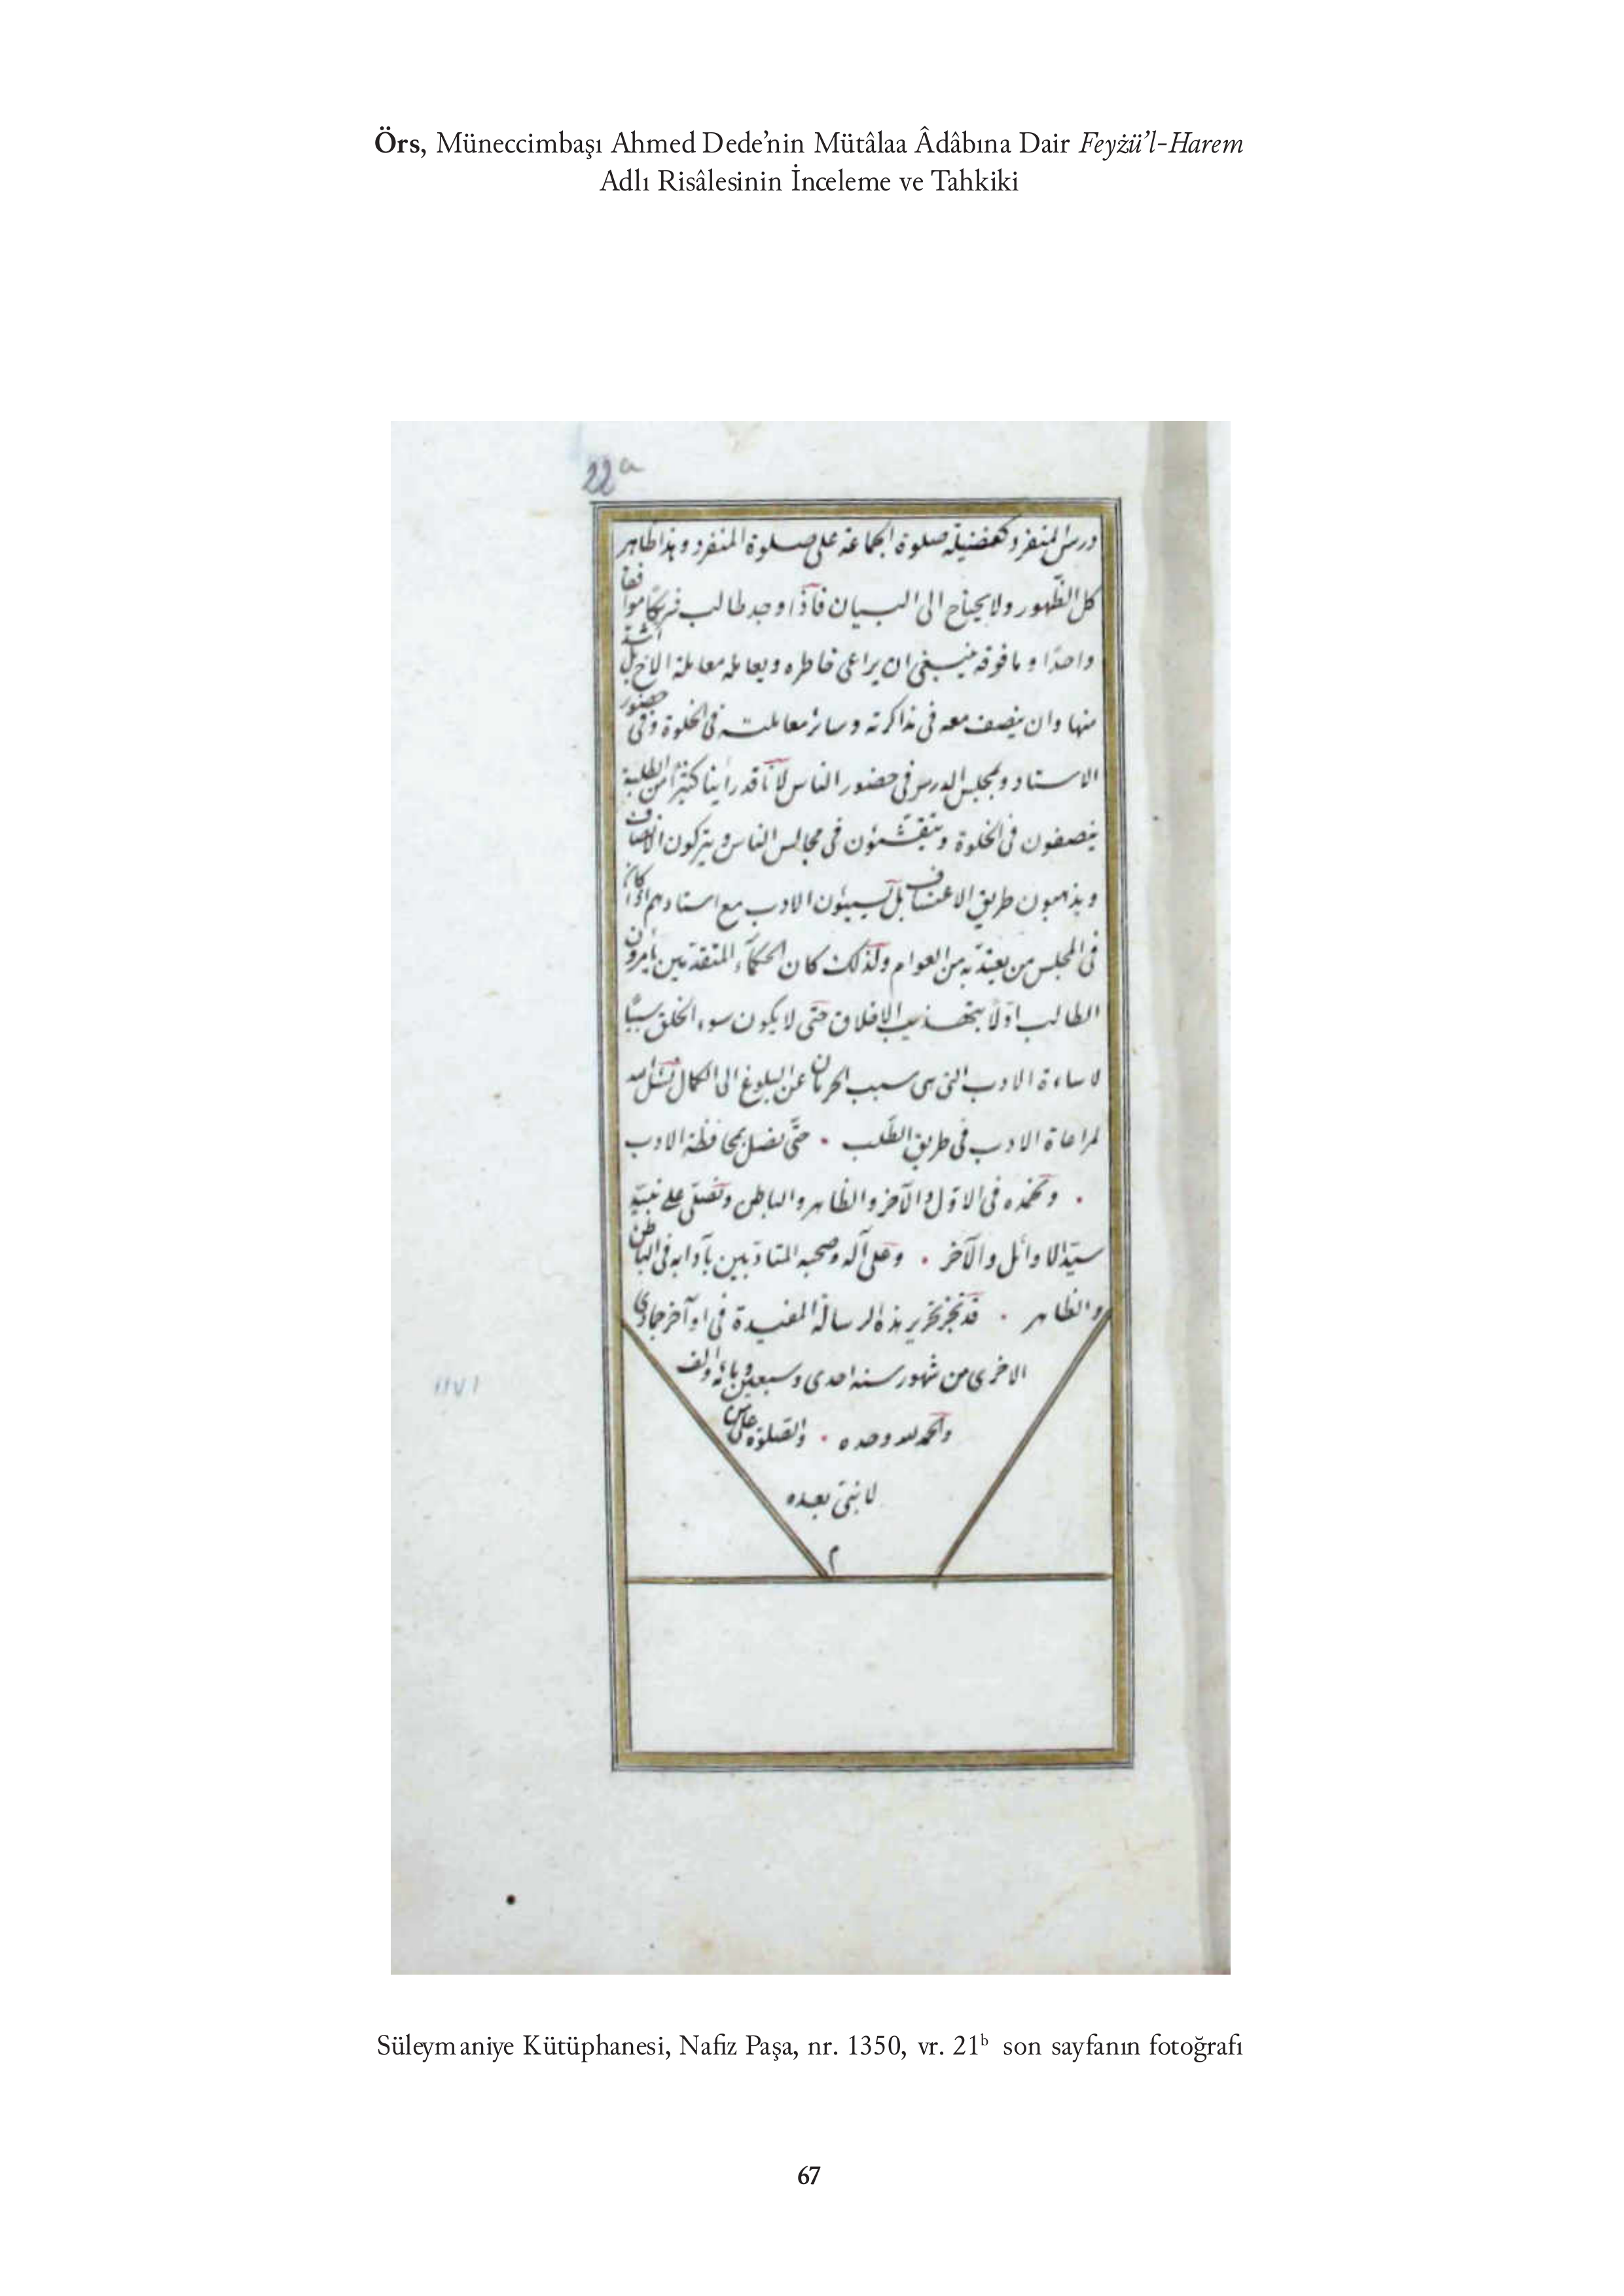 Örs, Müneccimbaşı Ahmed Dede’nin Mütâlaa Âdâbına Dair Feyżü’l-Harem
Adlı Risâlesinin İnceleme ve Tahkiki
22a
درس المنفرد كفضيلة صلوة الجماعة على صلوة المنفرد وهذا ظاهر
كل الظهور ولا يحتاج الى البيان فاذا وجد طالب شريكا موافقا
واحدا وما فوقه ينبغي ان يراعى خاطره ويعامله معاملة الاخ بل اشد
منها وان ينصف معه فى مذاكرته وسائر معاملته فى الخلوة وفى حضور
الاستاد وبمجلس الدرس فى حضور الناس لانا قد رأينا كثيرا من الطلبة
ينصفون فى الخلوة و فى مجالس الناس ويتركون الانصاف
ويذهبون طريق الاعتساف بل يسيئون الادب مع استادهم اذا كان
فى المجلس من يعتد به من العوام ولذلك كان الحكماء المتقدمين يأمرون
الطالب اولا بتهذيب الاخلاق حتى لا يكون سوء الخلق سببا
لاساءة الادب التى هى سبب الحرمان عن البلوغ الى الكمال نسئل الله
لمراعاة الادب فى طريق الطلب . حتى نصل بمحافظة الادب
. ونحمده فى الاول والآخر والظاهر والباطن ونصلى على نبيه
سيد الاوائل والآخر . وعلى آله وصحبه المتادبين بآدابه فى الباطن
والظاهر . قد نجز تحرير هذه الرسالة المفيدة فى اواخر جمادى
الاخرى من شهور سنه احدى وسبعين ومائة والف
والحمد لله وحده . والصلوة على من
لا نبى بعده
م
١١٧١
Süleymaniye Kütüphanesi, Nafiz Paşa, nr. 1350, vr. 21b son sayfanın fotoğrafı
67